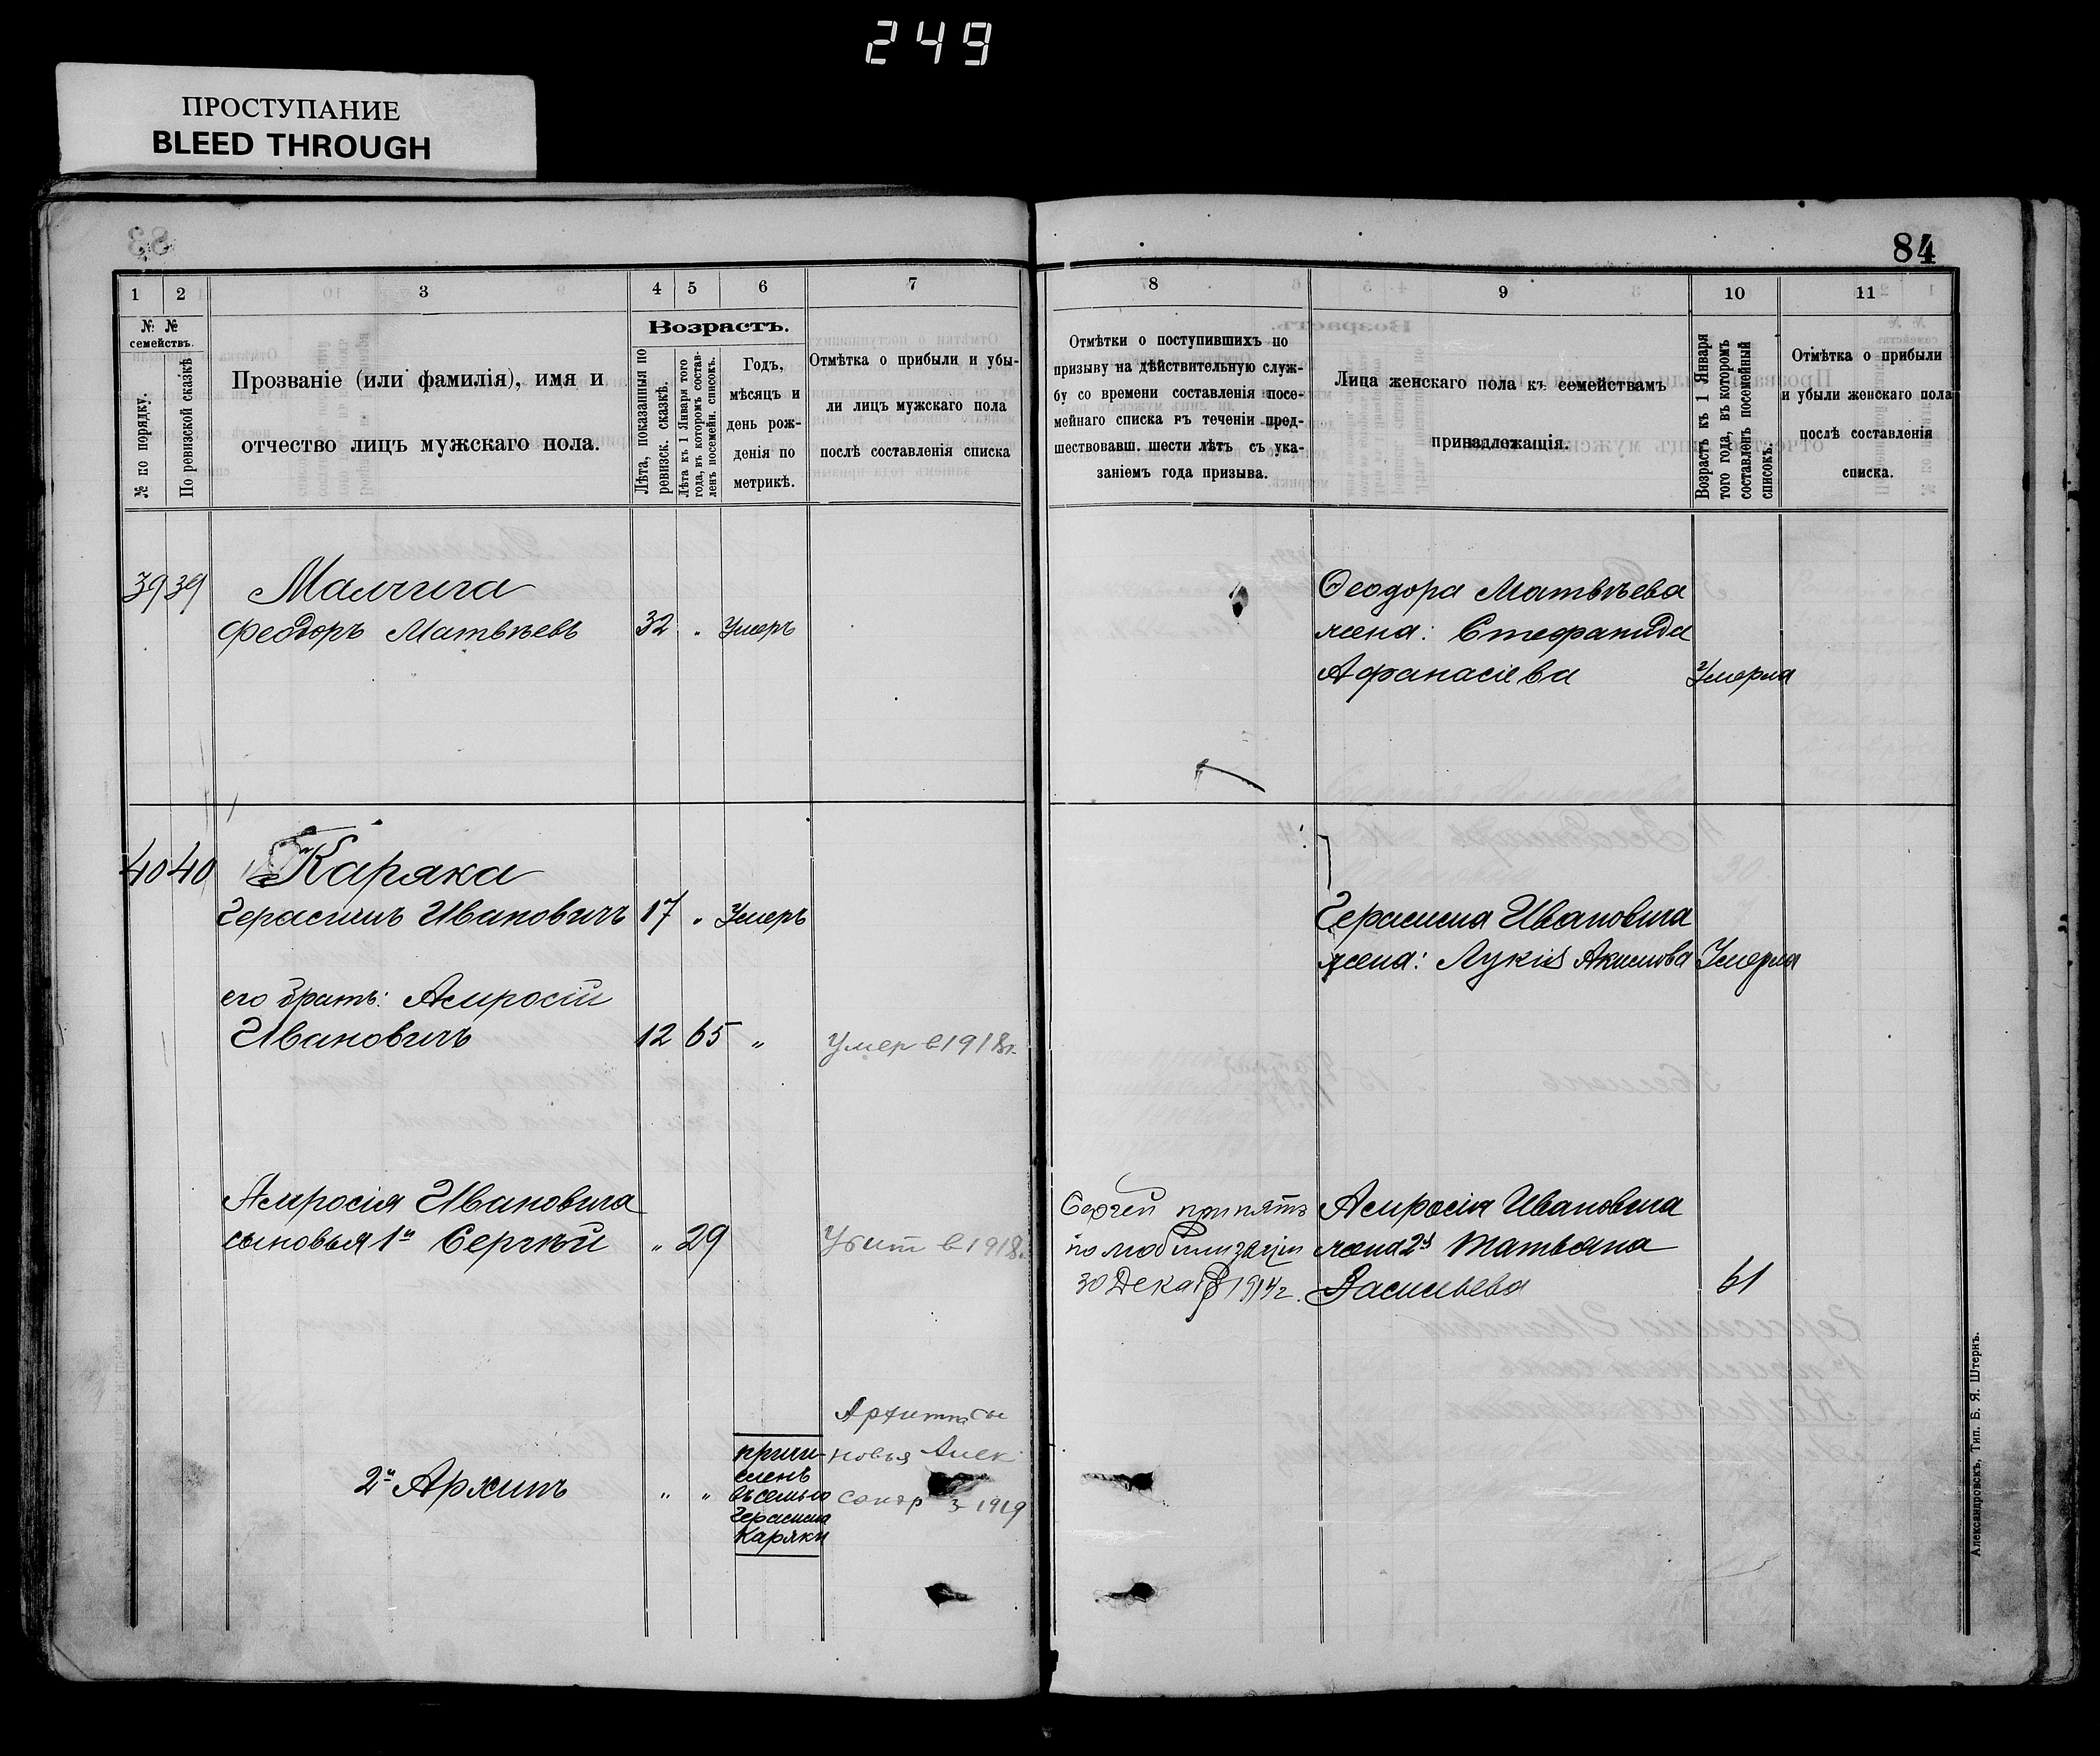 249
ПРОСТУПАНИЕ
BLEED THROUGH
83
84
1
2
3
4
5
6
7
№ №
семействъ.
№ по порядку.
По ревизской сказкѣ
Прозваніе (или фамилія), имя и
отчество лицъ мужскаго пола.
Возрастъ.
Лѣта, показанныя по
ревизск. сказкѣ.
Лѣта къ 1 Января того
года, въ которомъ состав-
ленъ посемейн. списокъ.
Годъ,
мѣсяцъ и
день рож-
денія по
метрикѣ.
Отмѣтка о прибыли и убы-
ли лицъ мужскаго пола
послѣ составленія списка
39 39
Малчига
Феодоръ Матвѣевъ 32 „ Умеръ
40 40
Каряка
Герасимъ Ивановичъ 17 „ Умеръ
его братъ: Амросій
Ивановичъ 12 65 „ Умер в 1918г.
Амросія Ивановича
сыновья 1й Сергѣй „ 29 Убит в 1918.
2й Архипъ „ „
причи-
сленъ
въ семью
Герасима
Каряки
Архипа сы
новья Алек
сандр 3 1919
8
9
10
11
Отмѣтки о поступившихъ по
призыву на дѣйствительную служ-
бу со времени составленія посе-
мейнаго списка въ теченіи пред-
шествовавш. шести лѣтъ съ ука-
заніемъ года призыва.
Лица женскаго пола къ семействамъ
принадлежащія.
Возрастъ къ 1 Января
того года, въ которомъ
составленъ посемейный
списокъ.
Отмѣтка о прибыли
и убыли женскаго пола
послѣ составленія
списка.
Феодора Матвѣева
жена: Стефанида
Афанасіева Умерла
Герасима Ивановича
жена: Лукія Акимова Умерла
Сергей принятъ
по мобилизаціи
30 Декаб 1914г.
Амросія Ивановича
жена 2я Татьяна
Васильева 61
Александровскъ, Тип. Б. Я. Штернъ.